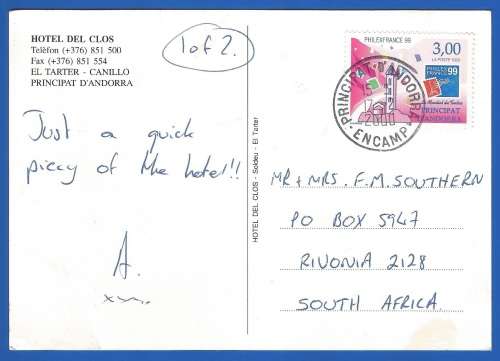 HOTEL DEL CLOS
Telèfon (+376) 851 500
Fax (+376) 851 554
EL TARTER - CANILLO
PRINCIPAT D'ANDORRA
1 of 2.
Just a quick
piccy of the hotel!!
A.
HOTEL DEL CLOS - Soldeu - El Tarter
PHILEXFRANCE 99
3,00
LA POSTE 1999
PHILEX
FRANCE
99
Le Mondial du Timbre
PRINCIPAT
D'ANDORRA
PRINCIPAT D'ANDORRA
ENCAMP
MR + MRS. F.M. SOUTHERN
PO BOX 5947
RIVONIA 2128
SOUTH AFRICA.